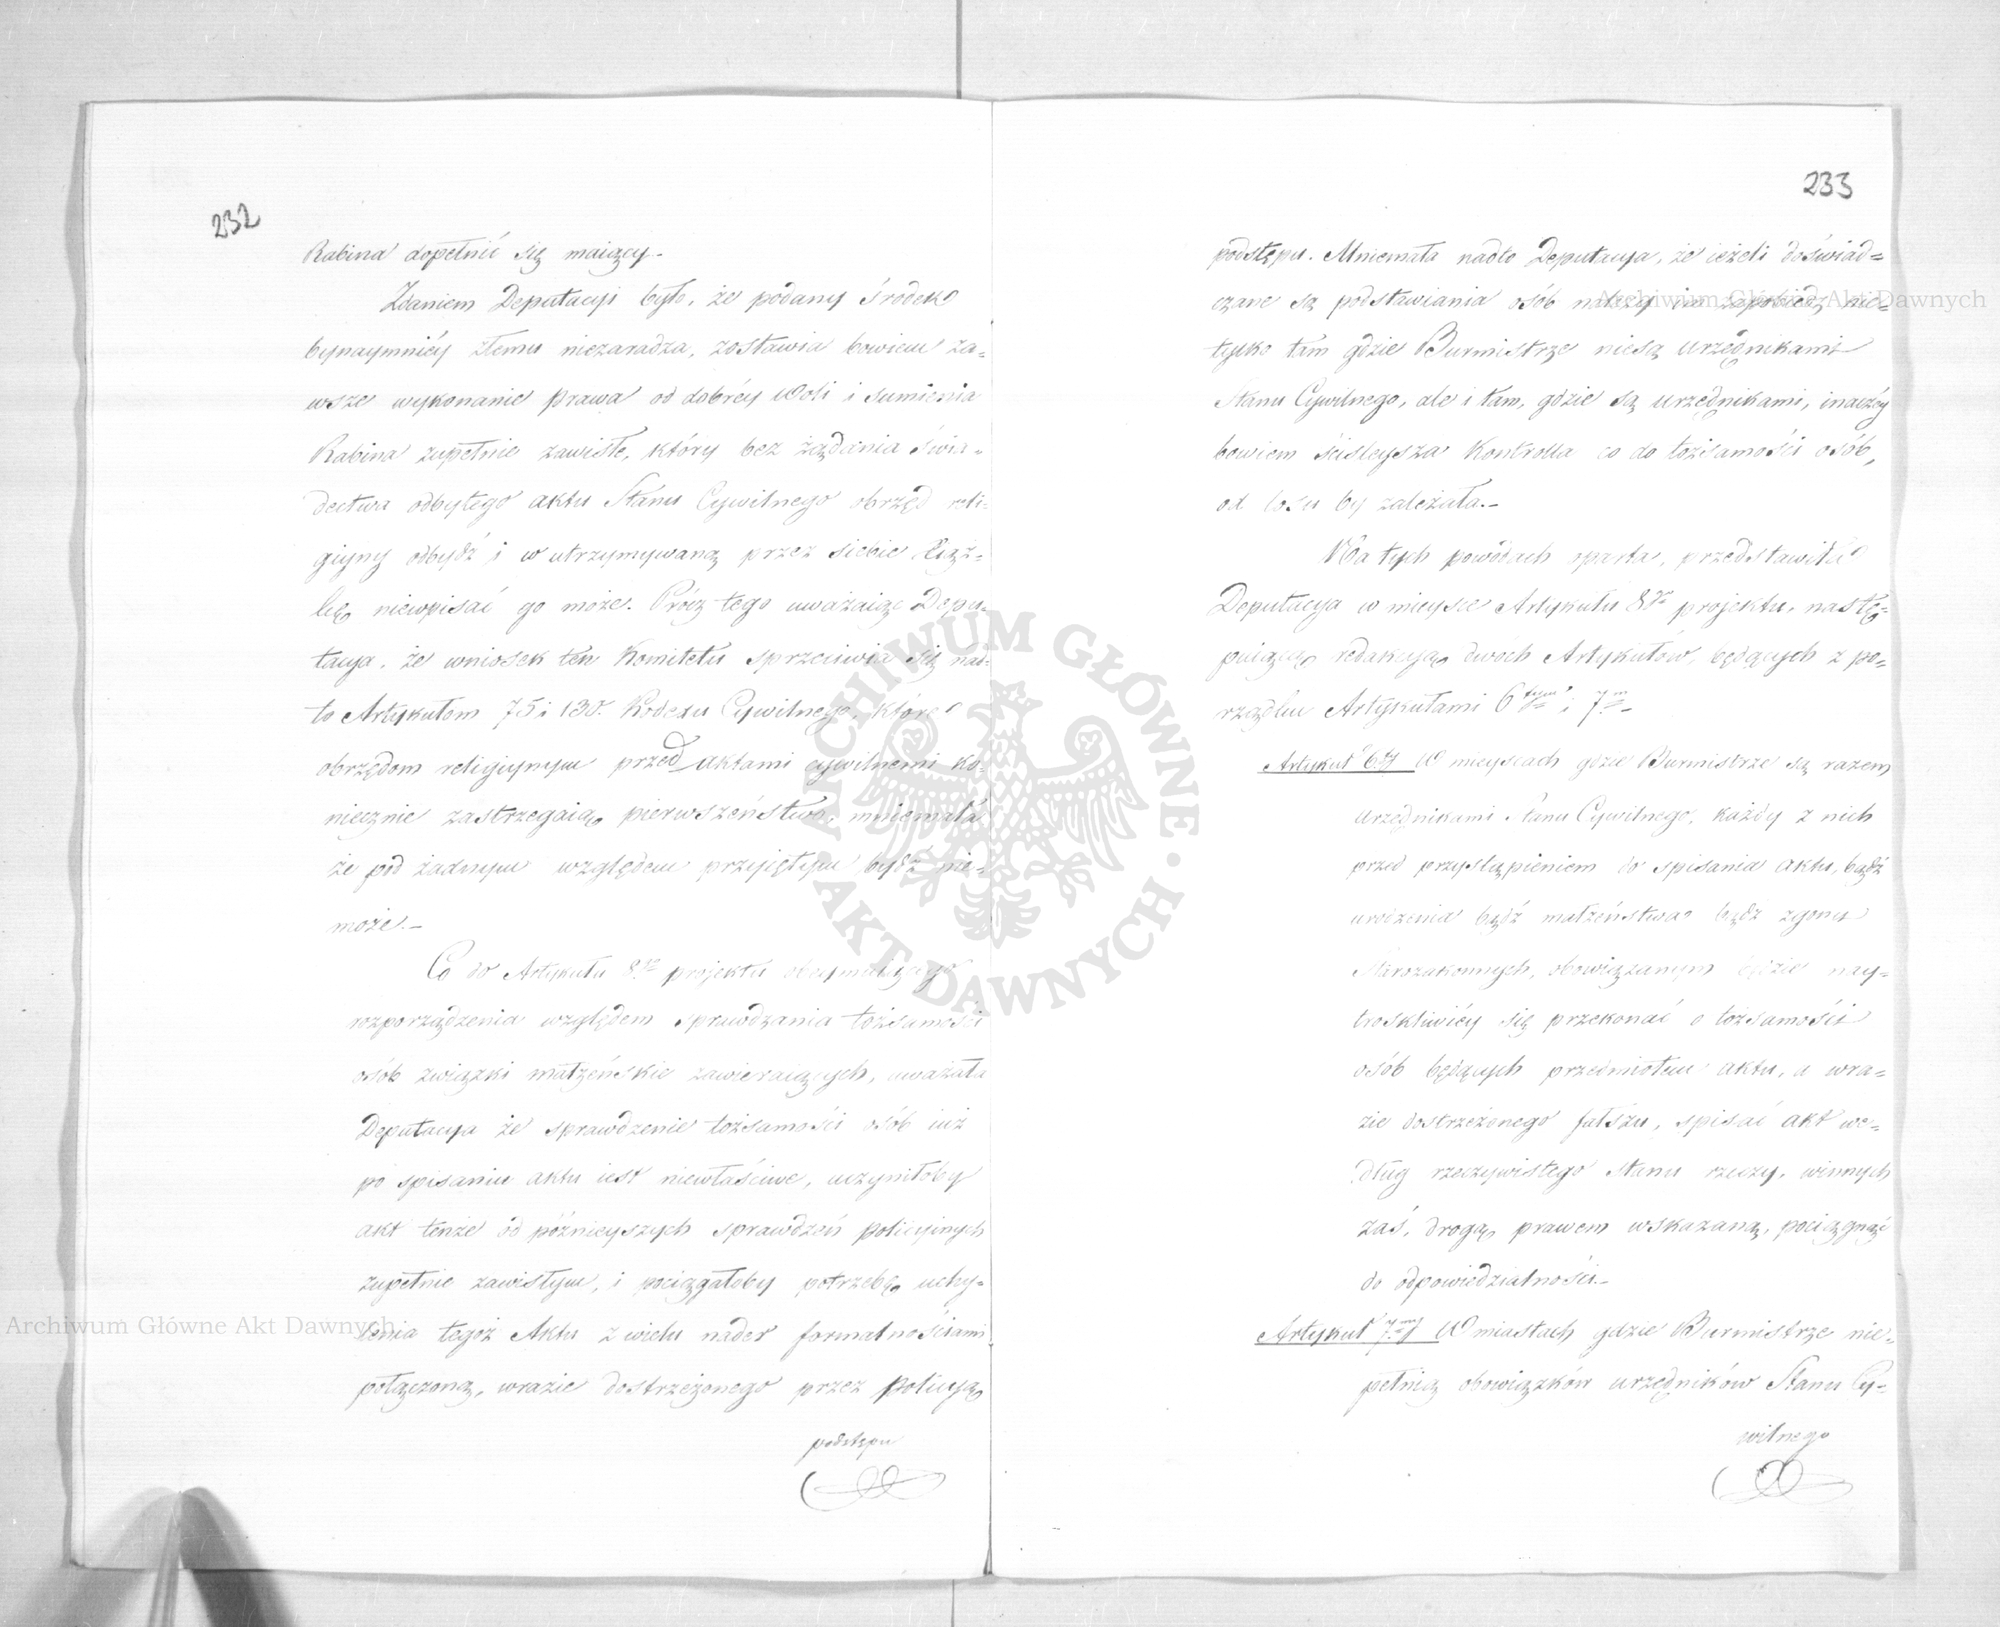 232
Rabina dopełnić się maiący.
Zdaniem Deputacyi było, że podany środek
bynaymniéy złemu niezaradza, zostawia bowiem za-
wsze wykonanie prawa od dobréy woli i sumienia
Rabina zupełnie zawisłe, który bez żądania świa-
dectwa odbytego aktu Stanu Cywilnego obrzęd reli-
giyny odbydź i w utrzymywaną przez siebie Xiąż-
kę niewpisać go może. Prócz tego uważaiąc Depu-
tacya, że wniosek ten Komitetu sprzeciwia się nad-
to Artykułom 75 i 130. Kodexu Cywilnego, które
obrzędom religiynym przed aktami cywilnemi ko-
niecznie zastrzegaią pierwszeństwo, mniemała
że pod żadnym względem przyiętym bydź nie-
może.-
Co do Artykułu 8go projektu obeymuiącego
rozporządzenia względem sprawdzania tożsamości
osób związki małżeńskie zawieraiących, uważała
Deputacya że sprawdzenie tożsamości osób iuż
po spisaniu aktu iest niewłaściwe, uczyniłoby
akt tenże od późnieyszych sprawdzeń policyinych
zupełnie zawisłym, i pociągałoby potrzebę uchy-
lenia tegoż Aktu z wielu nader formalnościami
połączoną, wrazie dostrzeżonego przez Policyą
podstępu
233
podstępu. Mniemała nadto Deputacya, że ieżeli doświad-
czane są podstawiania osób należy im zapobiedz nie-
tylko tam gdzie Burmistrze niesą urzędnikami
Stanu Cywilnego, ale i tam, gdzie są urzędnikami, inaczéy
bowiem ściśleysza Kontrolla co do tożsamości osób,
od losu by zależała.-
Na tych powodach oparta, przedstawiła
Deputacya w mieysce Artykułu 8go projektu, nastę-
puiącą redakcyą dwóch Artykułów, będących z po-
rządku Artykułami 6tym i 7m
Artykuł 6ty W mieyscach gdzie Burmistrze są razem
urzędnikami Stanu Cywilnego, każdy z nich
przed przystąpieniem do spisania aktu, bądź
urodzenia bądź małżeństwa bądź zgonu
Starozakonnych, obowiązanym będzie nay-
troskliwiéy się przekonać o tożsamości
osób będących przedmiotem aktu, a wra-
zie dostrzeżonego fałszu, spisać akt we-
dług rzeczywistego stanu rzeczy, winnych
zaś, drogą prawem wskazaną, pociągnąć
do odpowiedzialności.-
Artykuł 7my W miastach gdzie Burmistrze nie-
pełnią obowiązków urzędników Stanu Cy-
wilnego
Archiwum Główne Akt Dawnych
Archiwum Główne Akt Dawnych
ARCHIWUM GŁÓWNE · AKT DAWNYCH ·